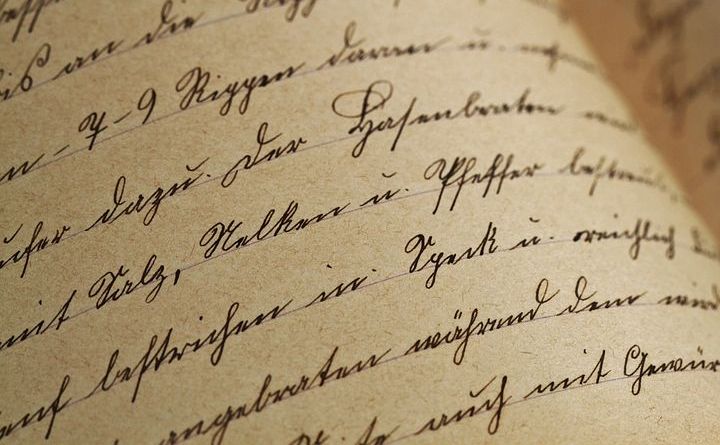 bis an die Ripp
n - 7 - 9 Rippen daran u.
ufer dazu. Der Hasenbraten
mit Salz, Nelken u. Pfeffer bestreut,
enf bestrichen in. Speck u. reichlich
angebraten während dem wird
te auch mit Gewür